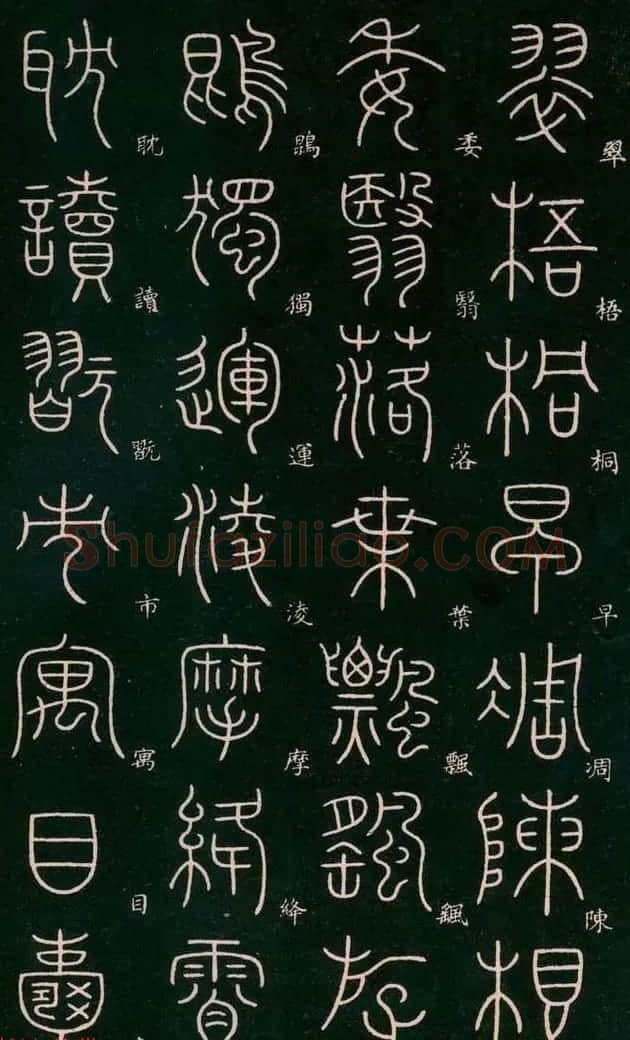 翠梧桐早凋陳根
翠梧桐早凋陳
委翳落葉飄颻游
委翳落葉飄颻
鵾獨運淩摩絳霄
鵾獨運淩摩絳
耽讀翫市寓目囊
耽讀翫市寓目
Shufaziliao.COM